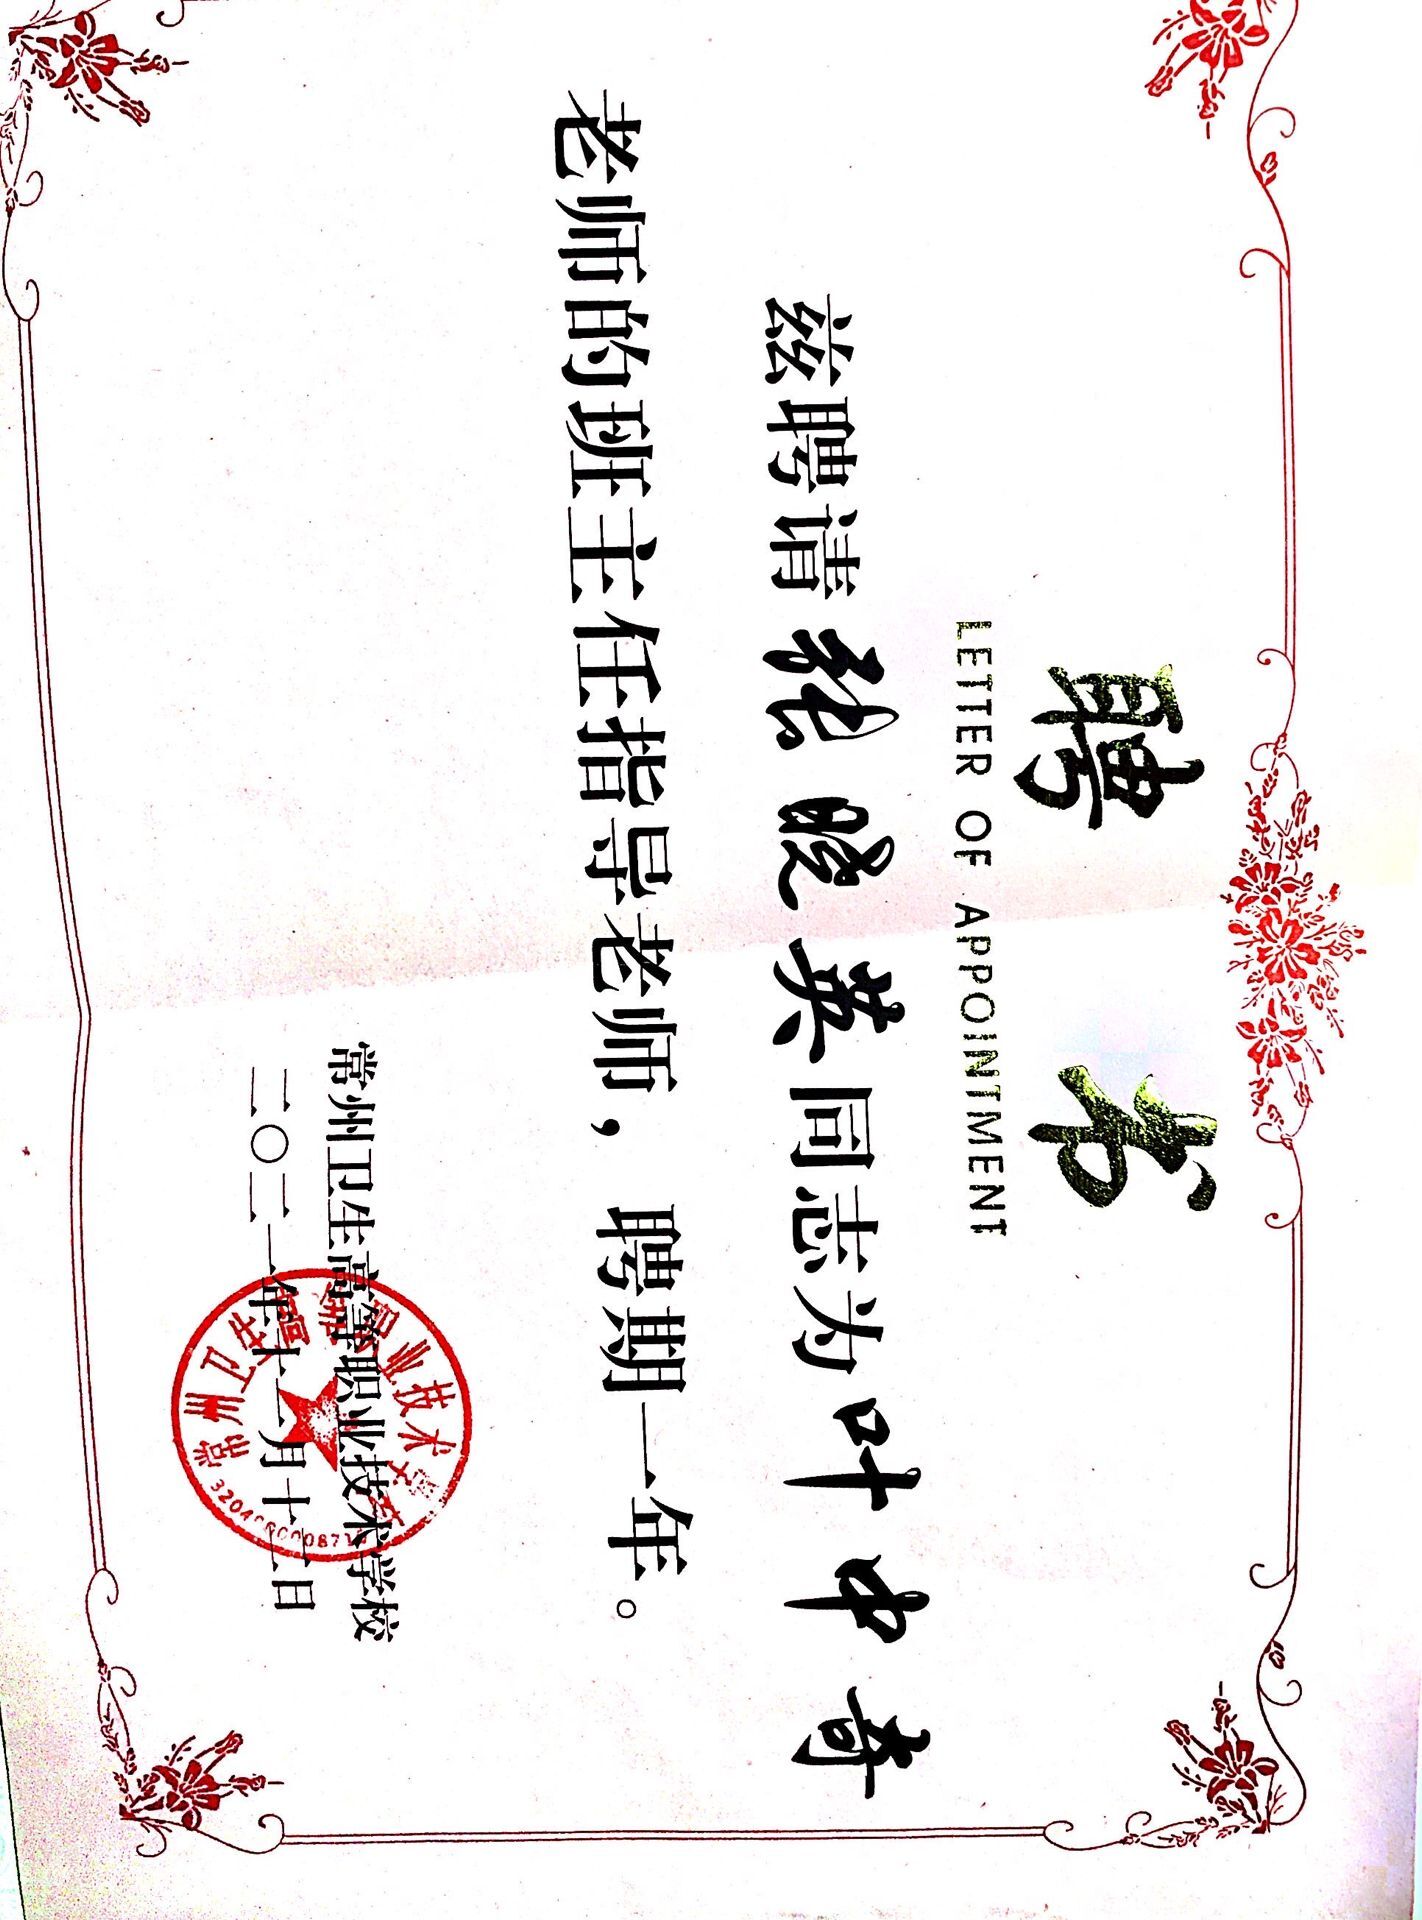 聘书
LETTER OF APPOINTMENT
兹聘请张晓英同志为叶中奇
老师的班主任指导老师，聘期一年。
常州卫生高等职业技术学校
二〇二一年十一月十二日
常州卫生高等职业技术学校